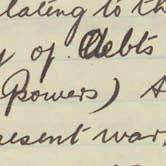 elating to th
y of Debts
Powers) A
resent war